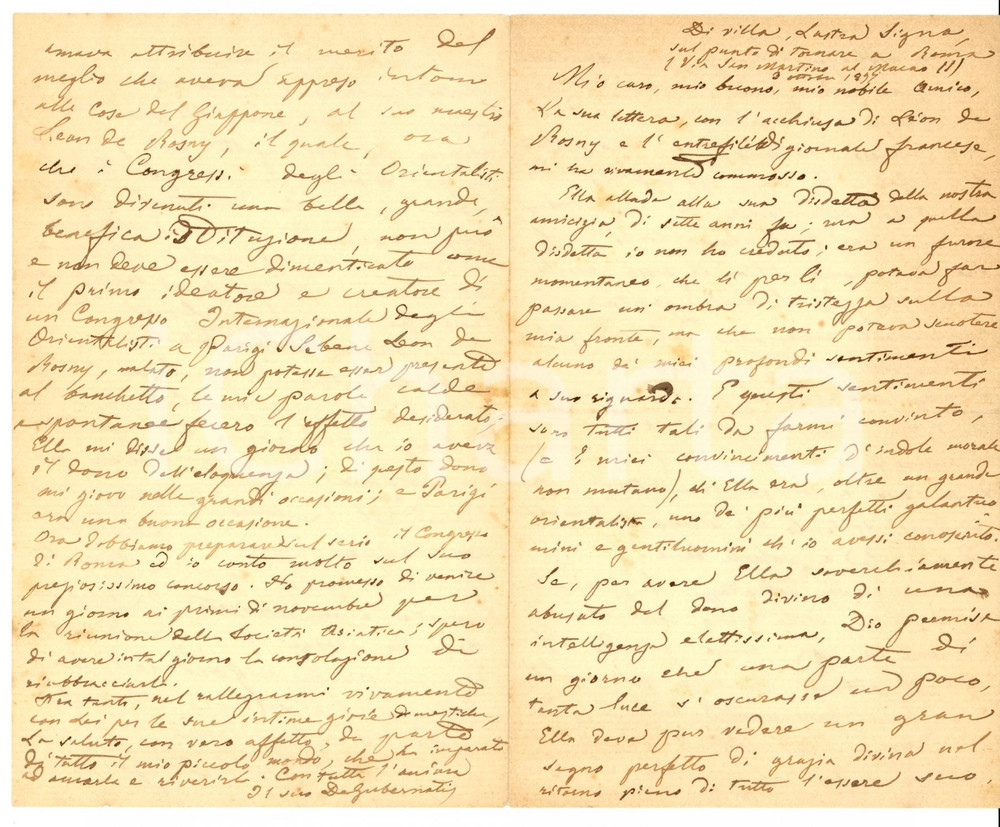 Di villa, Lastra Signa,
sul punto di tornare a Roma
(Via San Martino al Macao 11)
3 1897
Mio caro, mio buono, mio nobile Amico,
La sua lettera, con l'acchiusa di Léon de
Rosny e l'entrefilet di giornale francese,
mi ha vivamente commosso.
Ella allude alla sua disdetta della nostra
amicizia, di sette anni fa; ma a quella
disdetta io non ho creduto; era un furore
momentaneo, che lì per lì, poteva far
passare un'ombra di tristezza sulla
mia fronte, ma che non poteva scuotere
alcuno de' miei profondi sentimenti
a suo riguardo. E questi sentimenti
sono tutti tali da farmi convinto,
(e i miei convincimenti d'indole morale
non mutano), ch'Ella era, oltre un grande
orientalista, uno de' più perfetti galantuo-
mini e gentiluomini ch'io avessi conosciuto.
Se, per avere Ella soverchiamente
abusato del dono divino di una
intelligenza elettissima, Dio permise
un giorno che una parte di
tanta luce s'oscurasse un poco,
Ella deve pur vedere un gran
segno perfetto di grazia divina nel
ritorno pieno di tutto l'essere suo.
amava attribuire il merito del
meglio che aveva appreso intorno
alle cose del Giappone, al suo maestro
Léon de Rosny, il quale, ora
che i Congressi degli Orientalisti
sono divenuti una bella, grande,
benefica istituzione, non può
e non deve essere dimenticato come
il primo ideatore e creatore di
un Congresso Internazionale degli
Orientalisti a Parigi. Sebene Leon de
Rosny, malato, non potesse esser presente
al banchetto, le mie parole calde
e spontanee fecero l'effetto desiderato.
Ella mi disse un giorno che io aveva
il dono dell'eloquenza; di questo dono
mi giovo nelle grandi occasioni; e Parigi
era una buona occasione.
Ora dobbiamo preparare sul serio il Congresso
di Roma ed io conto molto sul suo
preziosissimo concorso. Ho promesso di venire
un giorno ai primi di novembre per
la riunione della Società Asiatica; spero
di avere in tal giorno la consolazione di
riabbracciarla.
Fra tanto, nel rallegrarmi vivamente
con Lei per le sue intime gioie domestiche,
La saluto, con vero affetto, da parte
di tutto il mio piccolo mondo, che ha imparato
ad amarla e riverirla. Con tutta l'anima
Il suo DeGubernatis